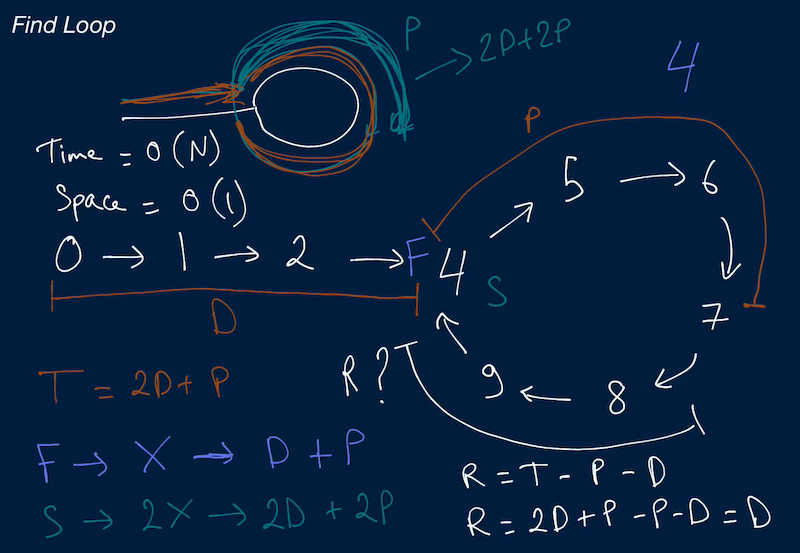 Find Loop
P → 2D+2P
4
Time = O(N)
Space = O(1)
P
0 → 1 → 2 → F 4 → 5 → 6
S
7
D
9 ← 8
R?
T = 2D+P
F → X → D+P
S → 2X → 2D+2P
R = T-P-D
R = 2D+P-P-D = D